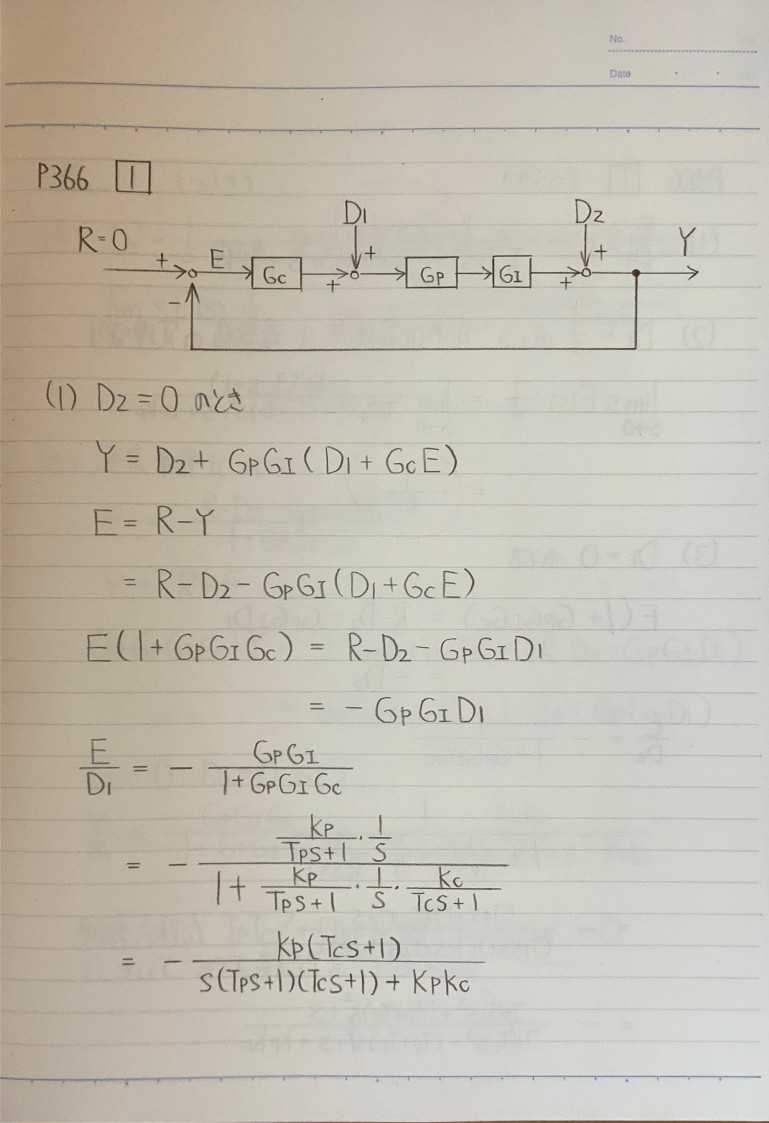 No.
Date
P366 1
D1 D2
R=0 + E Gc + + Gp GI + + Y
−
(1) D2=0 のとき
Y = D2 + GpGI(D1 + GcE)
E = R−Y
= R−D2−GpGI(D1+GcE)
E(1+GpGIGc) = R−D2−GpGID1
= −GpGID1
E/D1 = − GpGI/(1+GpGIGc)
= − (Kp/(Tps+1)・1/s)/(1+ Kp/(Tps+1)・1/s・Kc/(Tcs+1))
= − Kp(Tcs+1)/(s(Tps+1)(Tcs+1)+KpKc)